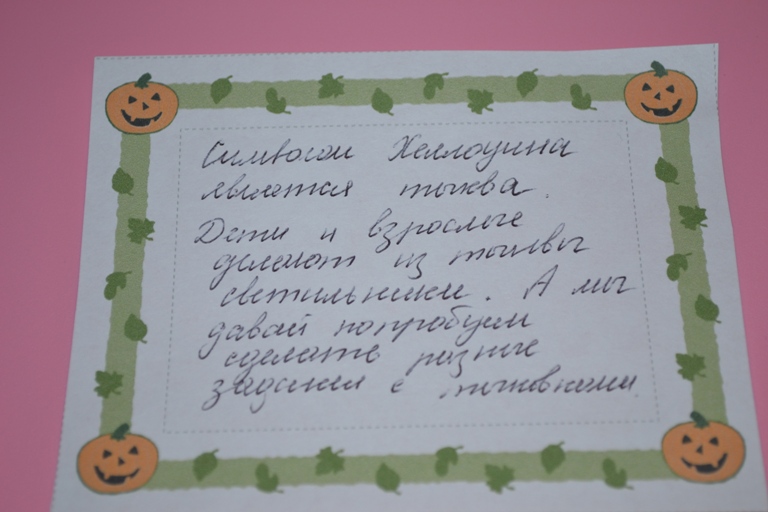 Символом Хеллоуина
является тыква.
Дети и взрослые
делают из тыквы
светильники. А мы
давай попробуем
сделать разные
задания с тыквками